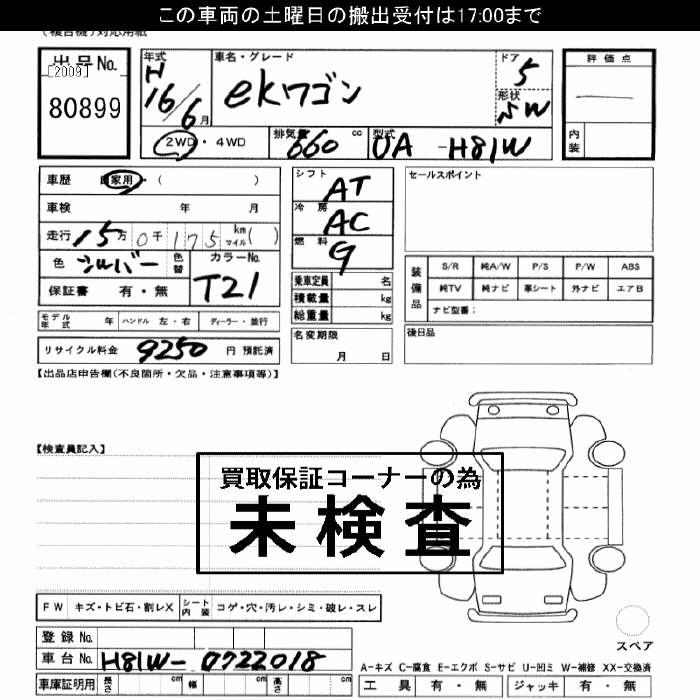 この車両の土曜日の搬出受付は17:00まで
(複合機)対応用紙
出品No.
[2009]
80899
年式
H
16/6月
車名・グレード
ekワゴン
ドア
5
形状
SW
評価点
内装
2WD・4WD
排気量
660 cc
型式
UA-H81W
車歴 自家用・( )
車検 年 月
走行 15万0千175 km マイル( )
色 シルバー 色替
カラーNo.
T21
保証書 有・無
モデル年式 年 ハンドル 左・右 ディーラー・並行
リサイクル料金 9250 円 預託済
シフト
AT
冷房
AC
燃料
G
乗車定員 名
積載量 kg
総重量 kg
名変期限
月 日
セールスポイント
装備品
S/R 純A/W P/S P/W ABS
純TV 純ナビ 革シート 外ナビ エアB
ナビ型番;
後日品
【出品店申告欄(不良箇所・欠品・注意事項等)】
【検査員記入】
買取保証コーナーの為
未検査
FW キズ・トビ石・割レX シート内装 コゲ・穴・汚レ・シミ・破レ・スレ
スペア
登録No.
車台No. H81W-0722018
車庫証明用 長さ cm 幅 cm 高さ cm
A-キズ C-腐食 E-エクボ S-サビ U-凹ミ W-補修 XX-交換済
工具 有・無 ジャッキ 有・無